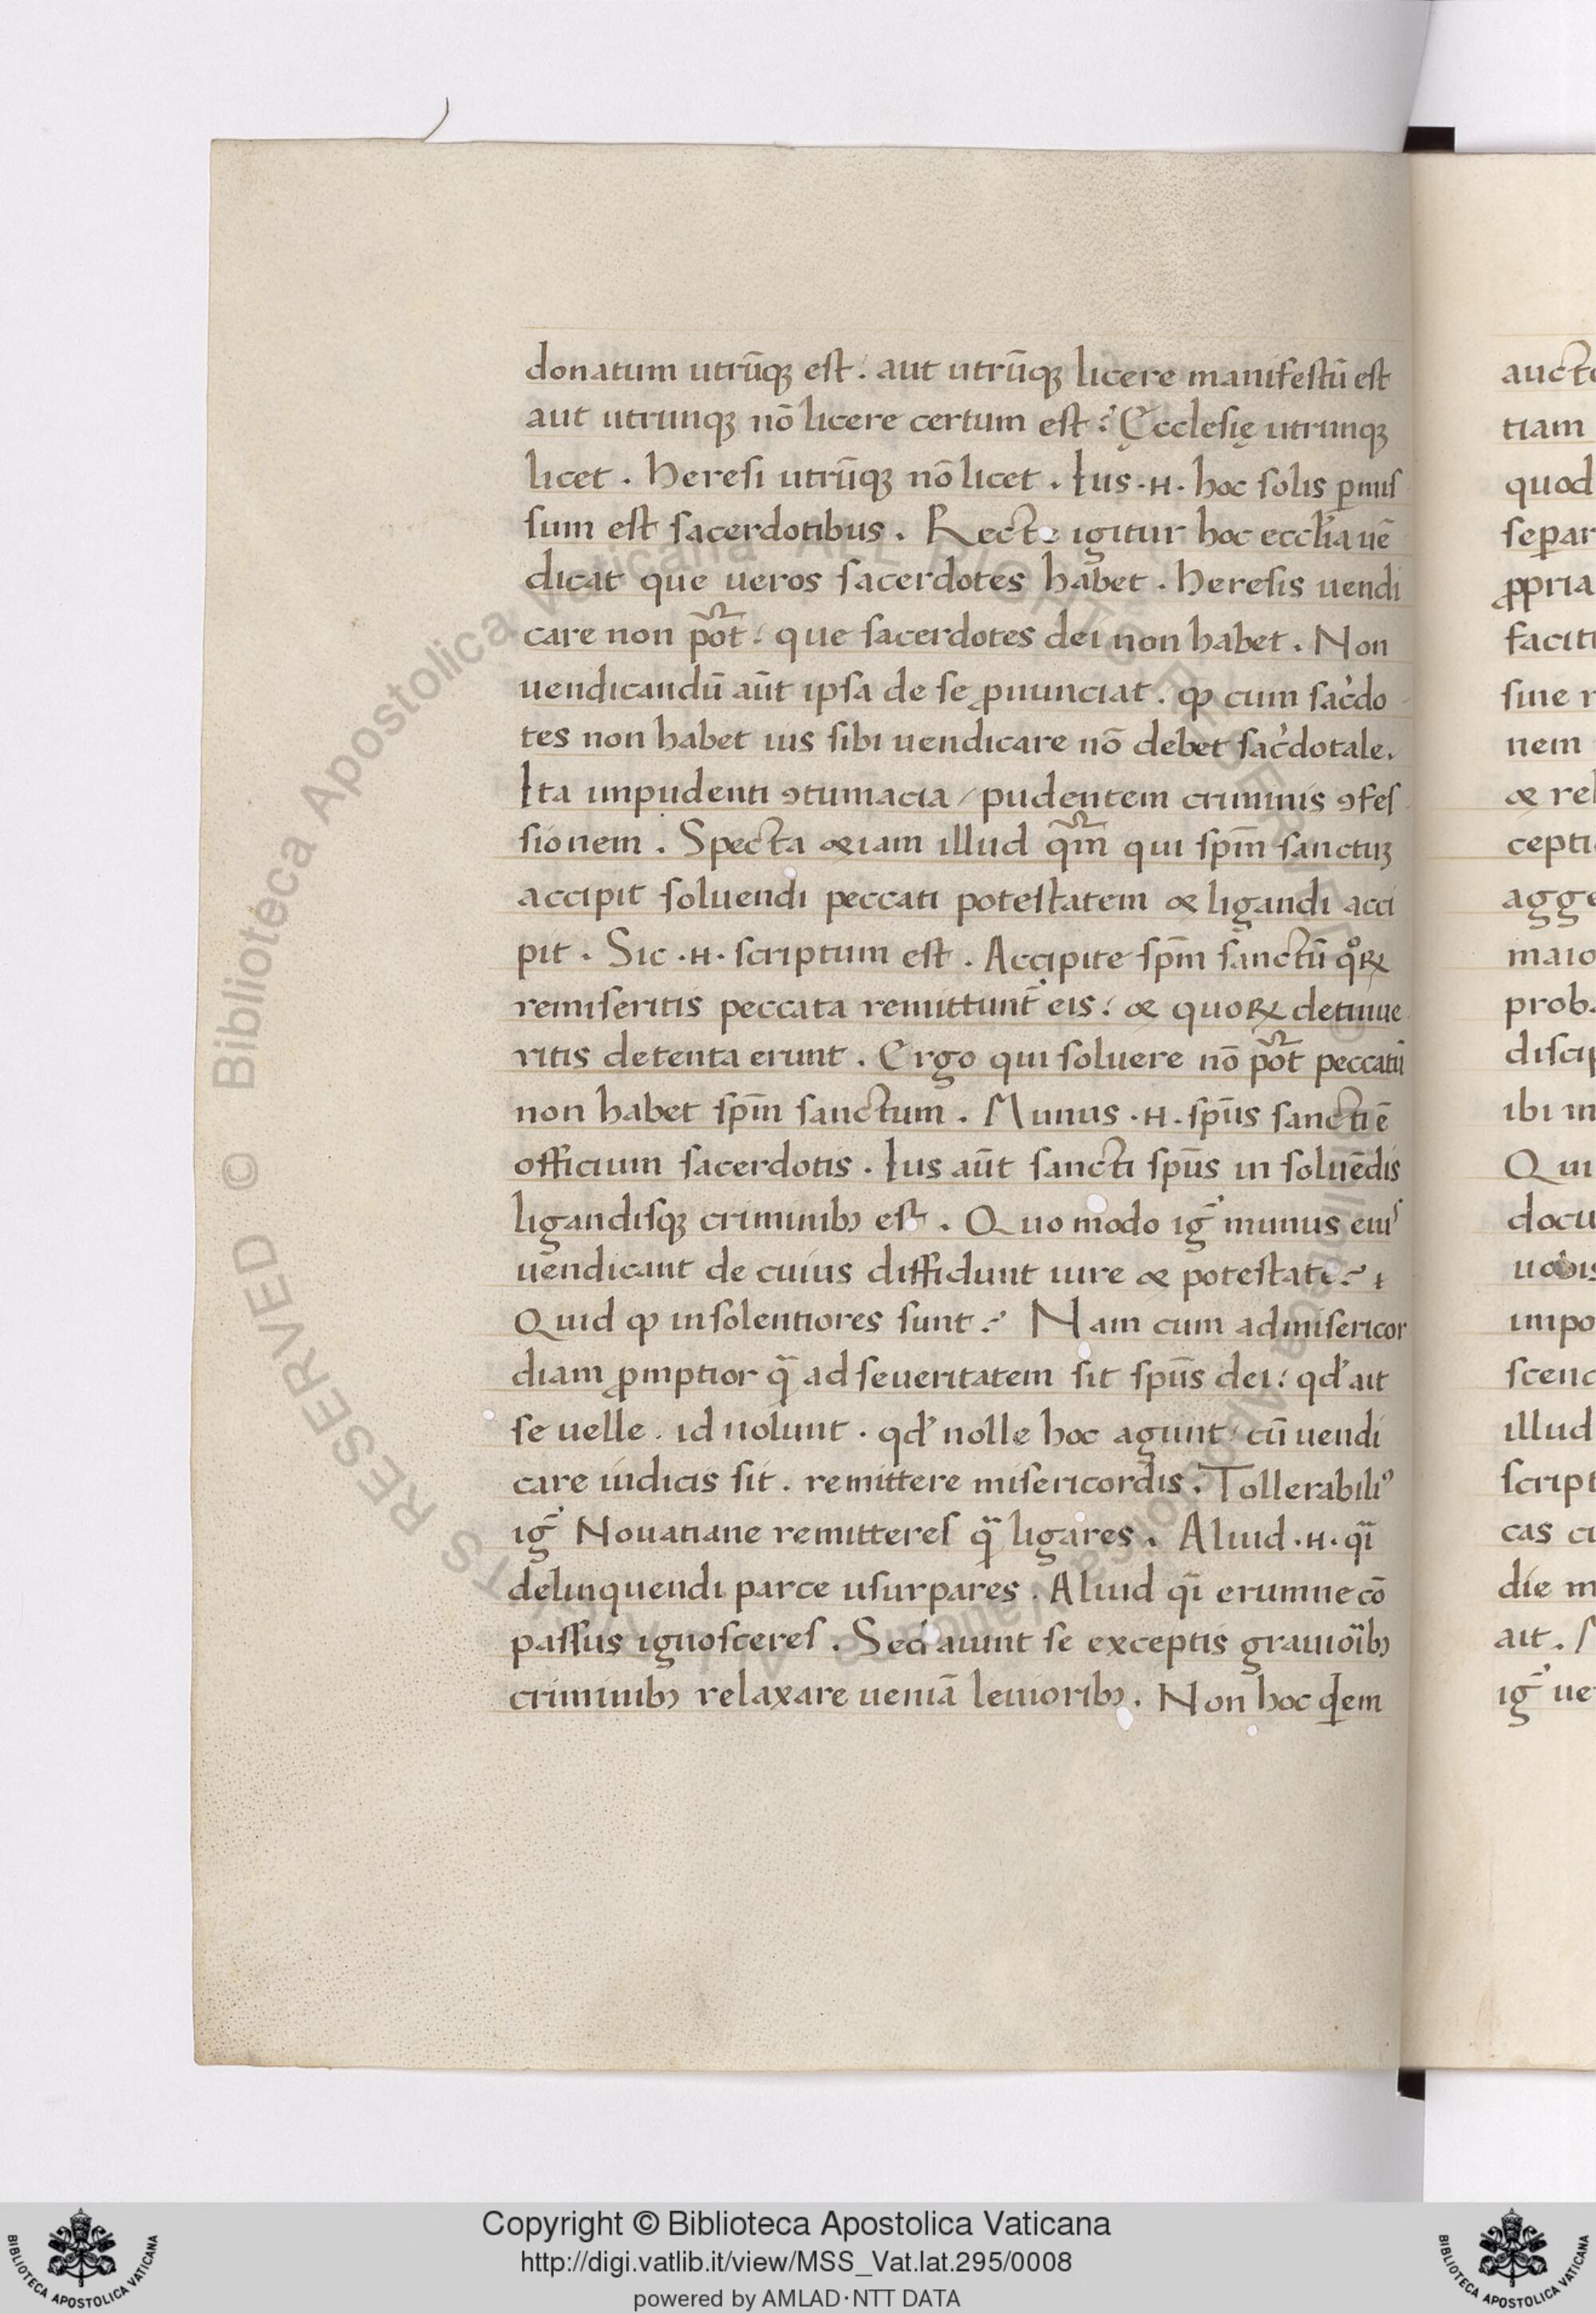 donatum utrūqꝫ est: aut utrūqꝫ licere manifestū est
aut utrunqꝫ nō licere certum est? Ęcclesię utrunqꝫ
licet. Heresi utrūqꝫ nō licet. Ius ·н· hoc solis ꝑmis
sum est sacerdotibus. Recte igitur hoc eccl̄ia uē
dicat que ueros sacerdotes habet. Heresis uendi
care non pōt: que sacerdotes dei non habet. Non
uendicandū aūt ipsa de se ꝓnunciat. ꝙ cum sac̓do
tes non habet ius sibi uendicare nō debet sac̓dotale.
Ita impudenti ꝯtumacia / pudentem criminis ꝯfes
sionem. Specta etiam illud qm̄ qui sp̄m sanctuꝫ
accipit soluendi peccati potestatem et ligandi acci
pit. Sic ·н· scriptum est. Accipite sp̄m sanctū qoꝝ
remiseritis peccata remittunt̄ eis: et quoꝝ detinue
ritis detenta erunt. Ergo qui soluere nō pōt peccatū
non habet sp̄m sanctum. Munus ·н· sp̄us sancti ē
officium sacerdotis. Ius aūt sancti sp̄us in soluēdis
ligandisqꝫ criminibꝰ est. Quo modo ig̅ munus eius
uendicant de cuius diffidunt iure et potestate?
Quid ꝙ insolentiores sunt? Nam cum ad misericor
diam ꝓmptior q̄ ad seueritatem sit sp̄us dei: qd̓ ait
se uelle. id nolunt. qd̓ nolle hoc agunt: cū uendi
care iudicis sit. remittere misericordis. Tollerabiliꝰ
ig̅ Nouatiane remitteres q̄ ligares. Aliud ·н· qi̅
delinquendi parce usurpares. Aliud qi̅ erumne cō
passus ignosceres. Sed aiunt se exceptis grauioībꝰ
criminibꝰ relaxare ueniā leuioribꝰ. Non hoc qͥdem
aucto
tiam
quod
separ
ꝓpria
faciti
siue r
nem
et rel
cepti
agge
maio
prob
discip
ibi in
Qui
docu
uobis
impo
scend
illud
script
cas cu
die m
ait.
ig̅ ue
© Biblioteca Apostolica Vaticana ALL RIGHTS RESERVED
Copyright © Biblioteca Apostolica Vaticana
http://digi.vatlib.it/view/MSS_Vat.lat.295/0008
powered by AMLAD·NTT DATA
BIBLIOTECA APOSTOLICA VATICANA
BIBLIOTECA APOSTOLICA VATICANA